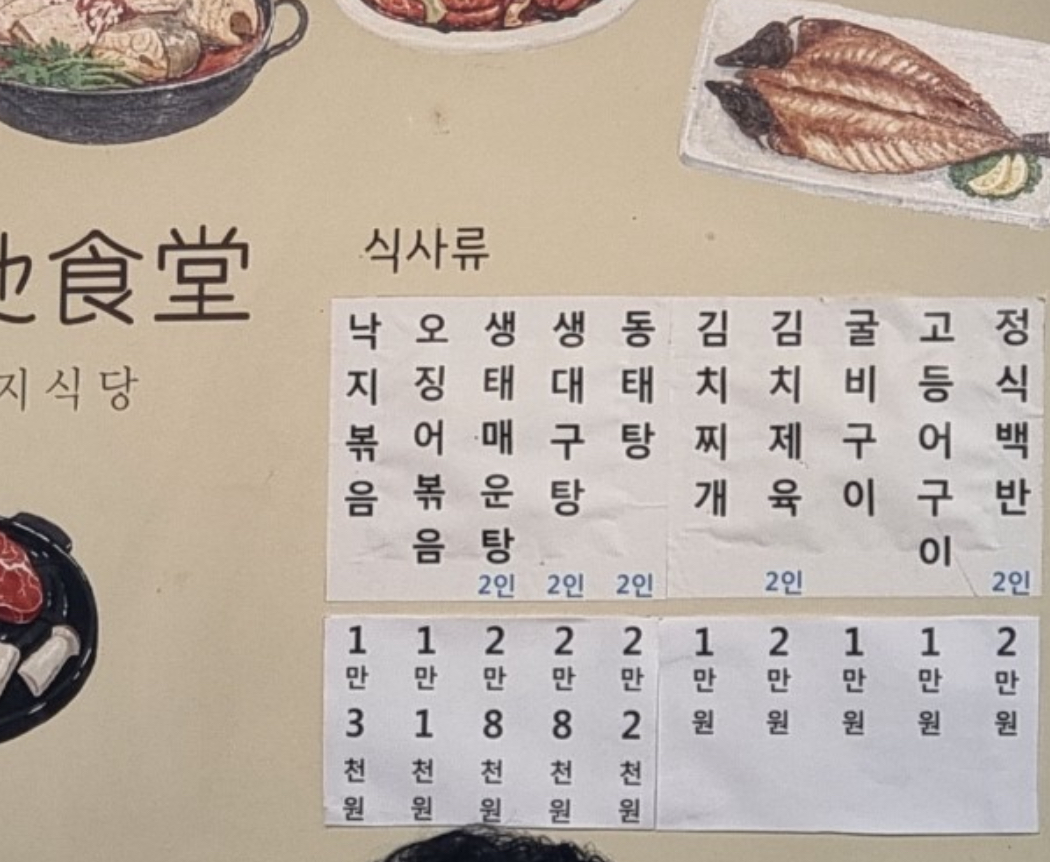 食堂
지식당
식사류
낙지볶음
오징어볶음
생태매운탕 2인
생대구탕 2인
동태탕 2인
김치찌개
김치제육 2인
굴비구이
고등어구이
정식백반 2인
1만3천원
1만1천원
2만8천원
2만8천원
2만2천원
1만원
2만원
1만원
1만원
2만원